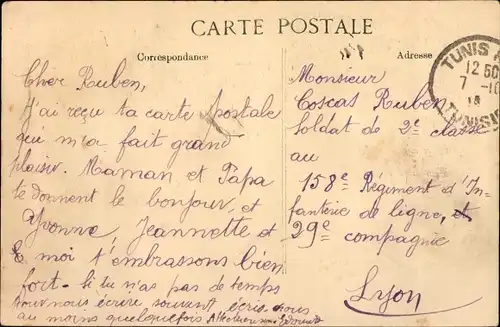 CARTE POSTALE
Correspondance
Cher Ruben,
J'ai reçu ta carte postale
qui m'a fait grand
plaisir. Maman et Papa
te donnent le bonjour, et
Yvonne, Jeannette et
moi t'embrassons bien
fort. Si tu n'as pas de temps
pour nous écrire souvent écris-nous
au moins quelquefois
Adresse
TUNIS
12 50
7 -10
TUNISIE
Monsieur
Coscas Ruben,
Soldat de 2e classe
au
158e Régiment d'In-
fanterie de ligne, et
29e compagnie
Lyon